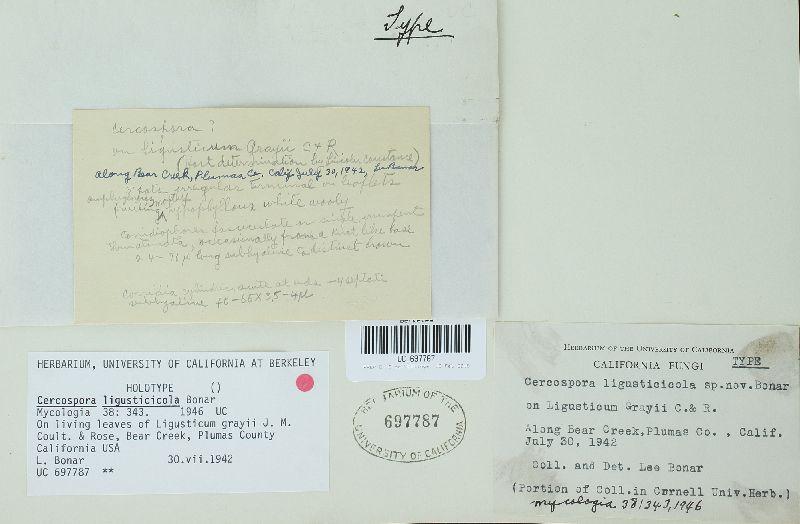 Type
Cercospora ?
on Ligusticum Grayii C & R
(host determination by Lincoln Constance)
along Bear Creek, Plumas Co, Calif July 30, 1942, Lee Bonar
Spots irregular terminal on leaflets
amphigenous mostly
fruiting hypophyllous white wooly
Conidiophores fasciculate
occasionally from a knot like base
24-71 µ long subhyaline to distinct brown
Conidia cylindric, acute at ends -4 septate
subhyaline 46-55 X 3.5-4µ
HERBARIUM, UNIVERSITY OF CALIFORNIA AT BERKELEY
HOLOTYPE ()
Cercospora ligusticicola Bonar
Mycologia 38: 343. 1946 UC
On living leaves of Ligusticum grayii J. M.
Coult. & Rose, Bear Creek, Plumas County
California USA
L. Bonar 30.vii.1942
UC 697787 **
UC 697787
HERBARIUM OF THE
697787
UNIVERSITY OF CALIFORNIA
HERBARIUM OF THE UNIVERSITY OF CALIFORNIA
CALIFORNIA FUNGI TYPE
Cercospora ligusticicola sp.nov.Bonar
on Ligusticum Grayii C.& R.
Along Bear Creek,Plumas Co. , Calif.
July 30, 1942
Coll. and Det. Lee Bonar
(Portion of Coll.in Cornell Univ.Herb.)
mycologia 38:343, 1946